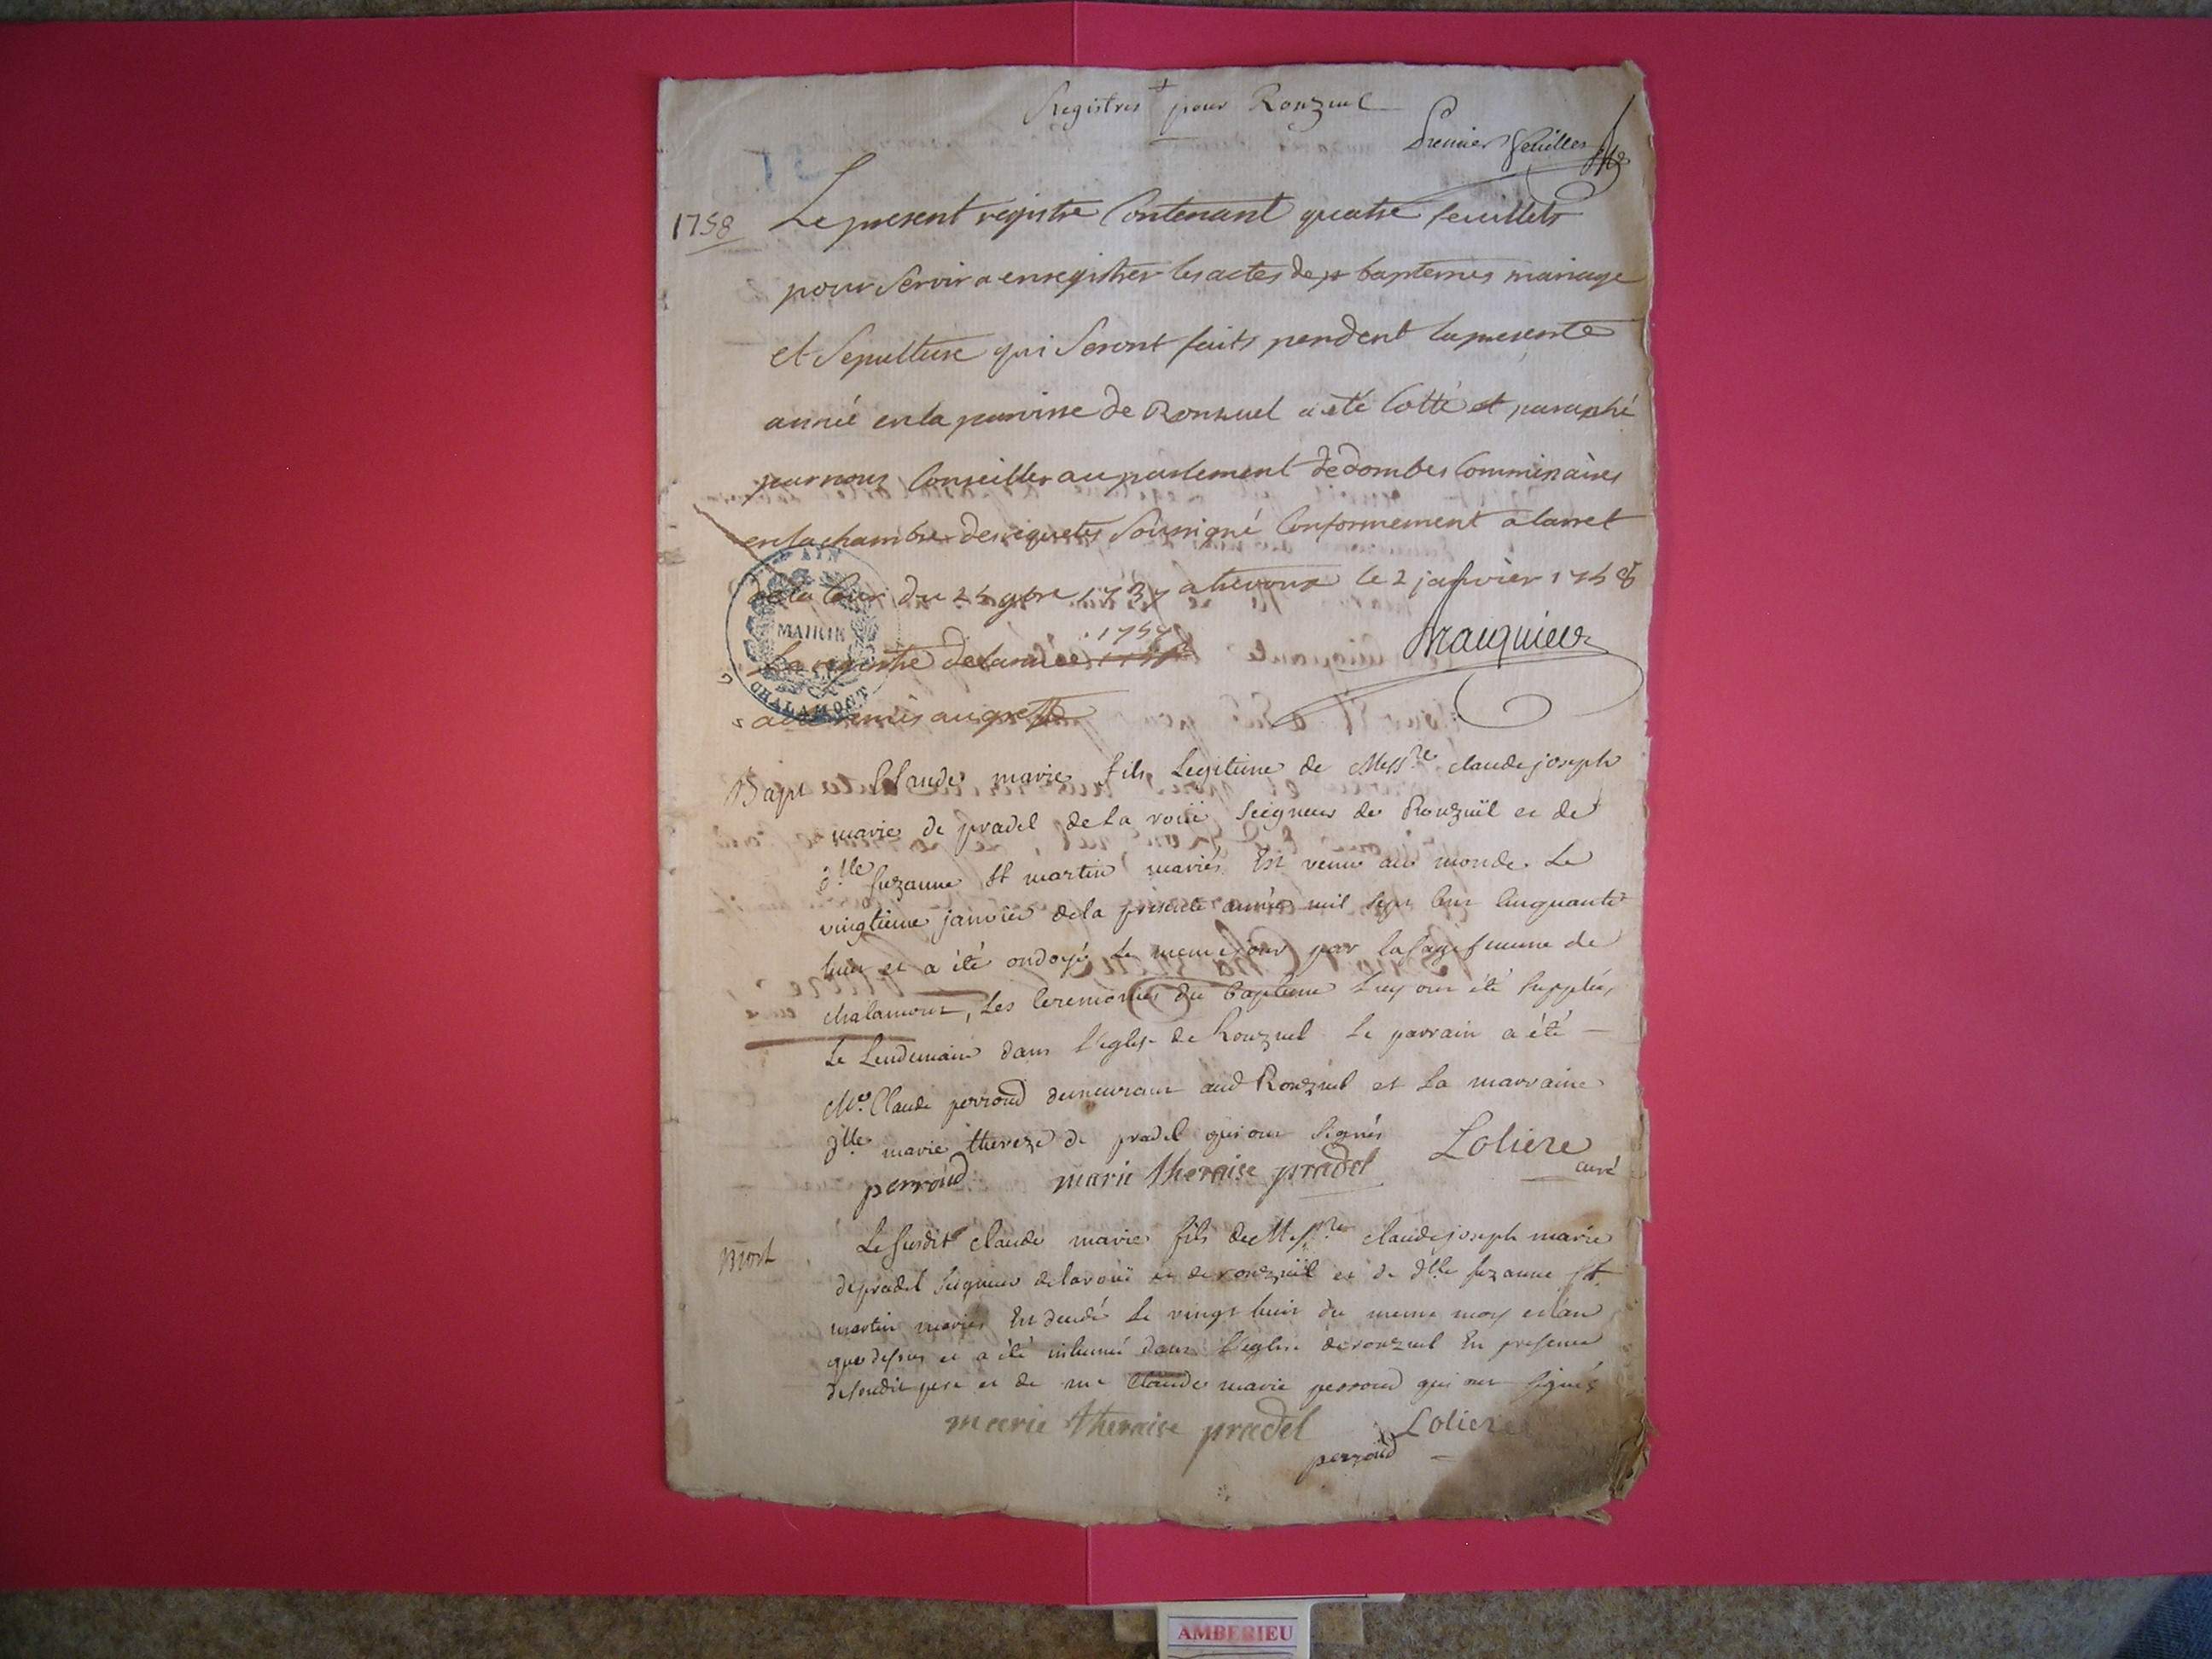 Registres pour Ronzuel
Premier feuillet
1758
Le present registre Contenant quatre feuillets
pour Servir a enregistrer les actes de baptemes mariage
et Sepulture qui Seront faits pendent la presente
année en la paroisse de Ronzuel a eté Cotté et paraphé
par nous Conseiller au parlement de dombes Commissaires
en la chambre des requetes Soussigné Conformement a larret
de la Cour du 9bre 1737 a trevoux le 2 janvier 1758
Le registre de lannee 1757
a été remis au greffe
MAIRIE
CHALAMONT
AIN
Bapt Claude marie fils Legitime de Messre claude joseph
marie de pradel de La roüe Seigneur de Ronzuël et de
dlle Suzanne St martin mariés Est venu au monde Le
vingtieme janvier de la presente année mil sept Cent Cinquante
huit et a été ondoyé Le meme jour par la sage femme de
chalamont, Les Ceremonies du Bapteme Luy ont été Supplées
Le Lendemain dans l'eglise de Ronzuel Le parrain a été
Mr Claude perroud demeurant aud Ronzuel et La marraine
dlle marie thereze de pradel qui ont Signés
Loliere
curé
perroud marie theraise pradel
Mort Le Susdit claude marie fils de Messre claude joseph marie
de pradel Seigneur de laroüe et de ronzuël et de dlle Suzanne St
martin mariés Est decedé Le vingt huit du meme moy et l'an
que dessus et a été inhumé dans l'eglise de ronzuel En presence
de Sondit pere et de mr Claude marie perroud qui ont Signés
marie theraise pradel Loliere
perroud
AMBERIEU